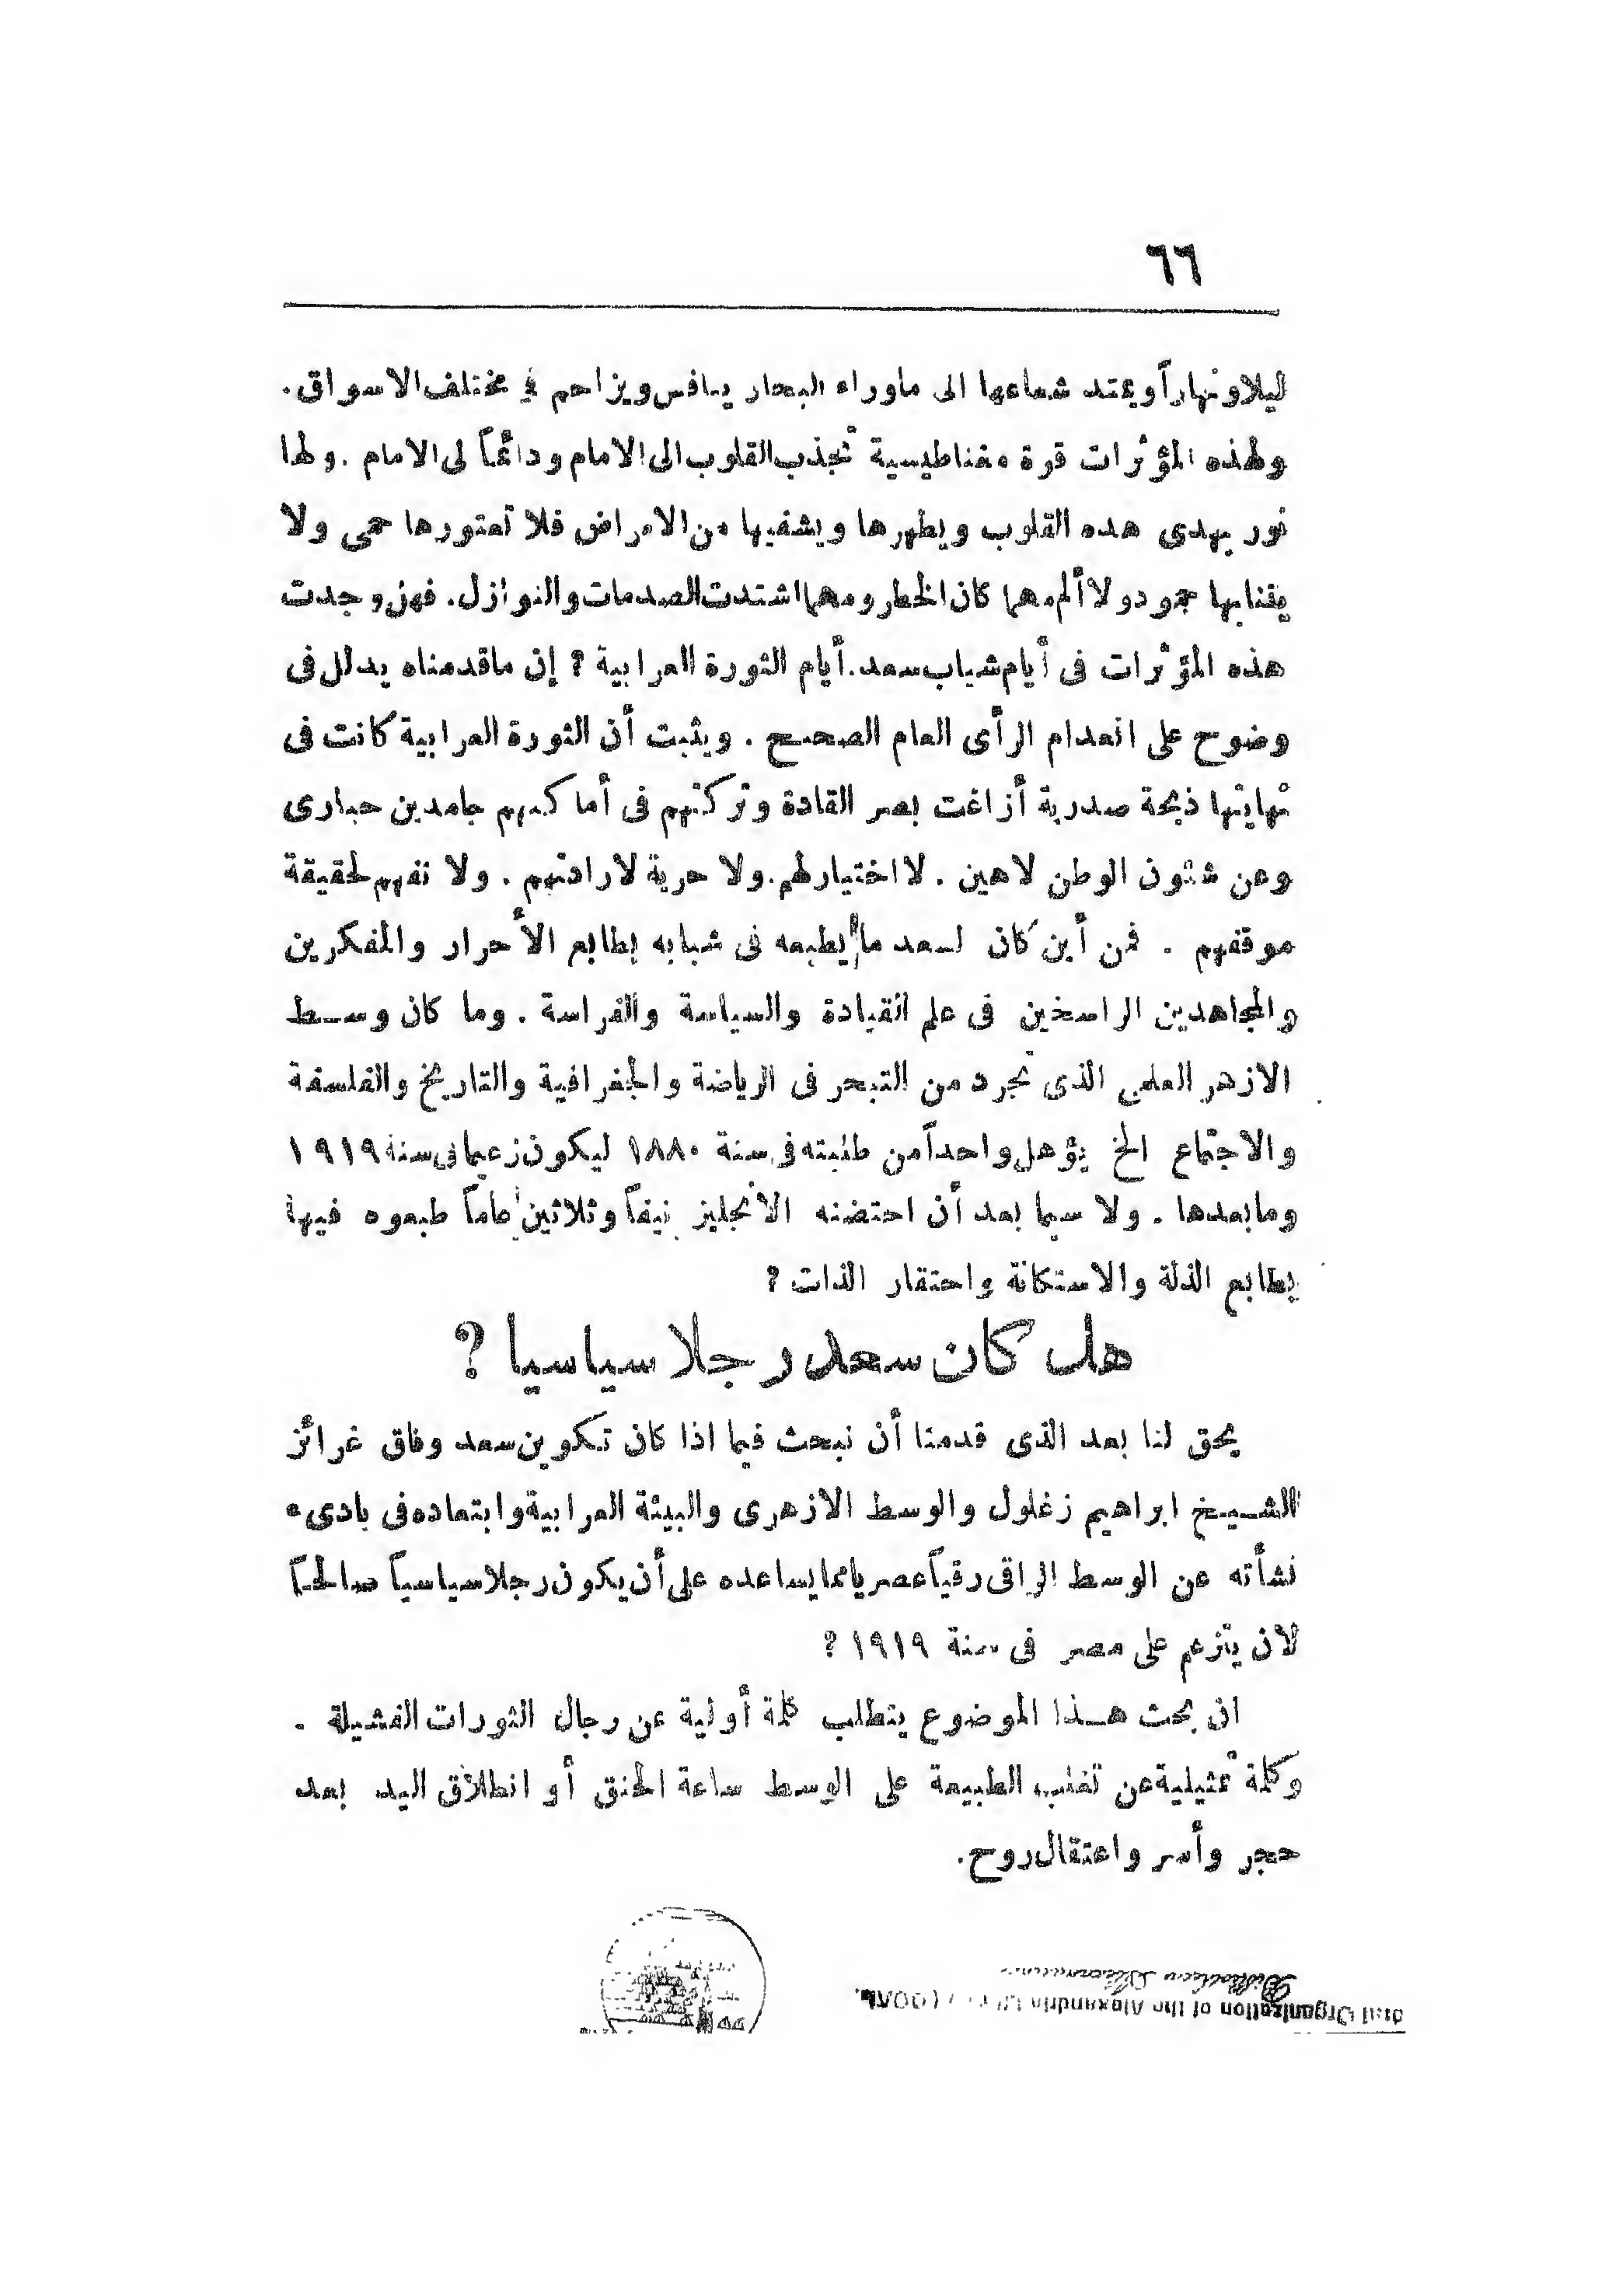 ٦٦
ليلا ونهاراً ويمتد شعاعها الى ماوراء البحار ينافس ويزاحم في مختلف الاسواق.
ولهذه المؤثرات قوة مغناطيسية تجذب القلوب الى الامام ودائماً لى الامام . ولها
نور يهدى هده القلوب ويطهرها ويشفيها من الامراض فلا تعتورها حمى ولا
يقتابها جمود ولا ألم مهما كان الخطر ومهما اشتدت الصدمات والنوازل. فهل وجدت
هذه المؤثرات فى أيام شباب سعد. أيام الثورة العرابية ؟ إن ماقدمناه يدلل فى
وضوح على انعدام الرأى العام الصحيح . ويثبت أن الثورة العرابية كانت فى
نهايتها ذبحة صدرية أزاغت بصر القادة وتركتهم فى أما كنهم جامدين حيارى
وعن شئون الوطن لاهين . لا اختيار لهم. ولا حرية لارادتهم . ولا تفهم لحقيقة
موقفهم . فمن أين كان لسعد ما يطبعه فى شبابه بطابع الأحرار والمفكرين
والمجاهدين الراسخين فى علم القيادة والسياسة والفراسة . وما كان وسط
الازهر العلمى الذى تجرد من التبحر فى الرياضة والجغرافية والتاريخ والفلسفة
والاجتماع الخ يؤهل واحداً من طلبته فى سنة ١٨٨٠ ليكون زعيما فى سنة ١٩١٩
ومابعدها . ولا سيما بعد أن احتضنه الانجليز نيفاً وثلاثين عاماً طبعوه فيها
بطابع الذلة والاستكانة واحتقار الذات ؟
هل كان سعد رجلا سياسيا ؟
يحق لنا بعد الذى قدمنا أن نبحث فيما اذا كان تكوين سعد وفاق غرائز
الشيخ ابراهيم زغلول والوسط الازهرى والبيئة العرابية وابتعاده فى بادىء
نشأته عن الوسط الراقى رقياً عصريا مما يساعده على أن يكون رجلا سياسياً صالحاً
لان يتزعم على مصر فى سنة ١٩١٩ ؟
ان بحث هذا الموضوع يتطلب كلمة أولية عن رجال الثورات الفشيلة .
وكلمة تمثيلية عن تغلب الطبيعة على الوسط ساعة الحنق أو انطلاق اليد بعد
حجر وأسر واعتقال روح.
Bibliotheca Alexandrina
Organization of the Alexandria